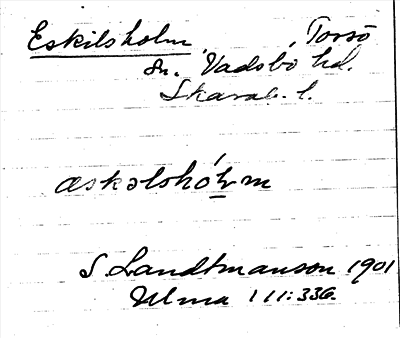 Eskilsholm, Torsö
sn. Vadsbo hd.
Skarab. l.
æskəlshólm
S. Landtmanson 1901
Ulma 111:336.